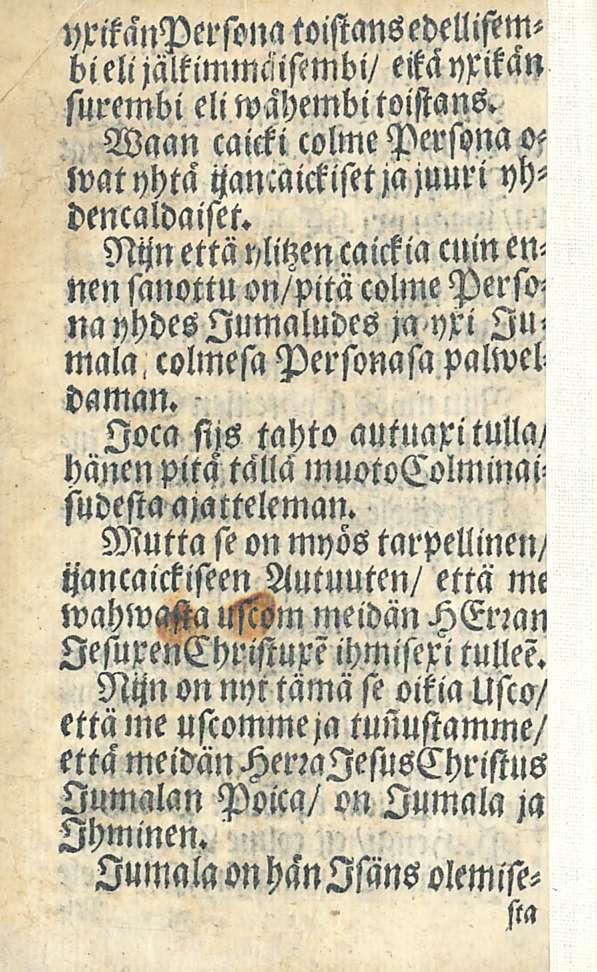 yxikän Persona toistans edellisem⸗
bi eli jälkimmäisembi/ eikä yxikän
surembi eli wähembi toistans.
Waan caicki colme Persona o⸗
wat yhtä ijancaickiset ja juuri yh⸗
dencaldaiset.
Nijn että ylitzen caickia cuin en⸗
nen sanottu on/ pitä colme Perso⸗
na yhdes Jumaludes ja yxi Ju⸗
mala, colmesa Personasa palwel⸗
daman.
Joca sijs tahto autuaxi tulla/
hänen pitä tällä muoto Colminai⸗
sudesta ajatteleman.
Mutta se on myös tarpellinen/
ijancaickiseen Autuuten/ että me
wahwasta uscom meidän HErran
Jesuxen Christuxē ihmisexi tulleē.
Nijn on nyt tämä se oikia Usco/
että me uscomme ja tuñustamme/
että meidän Herra Jesus Christus
Jumalan Poica/ on Jumala ja
Ihminen.
Jumala on hän Isäns olemise⸗
sta